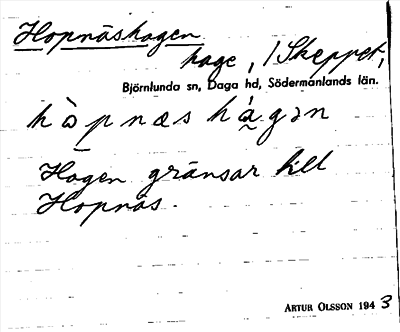 Hopnäshagen
hage, i Skeppet,
Björnlunda sn, Daga hd, Södermanlands län.
hò̱pnæs há̱gən
Hagen gränsar till
Hopnäs.
ARTUR OLSSON 1943